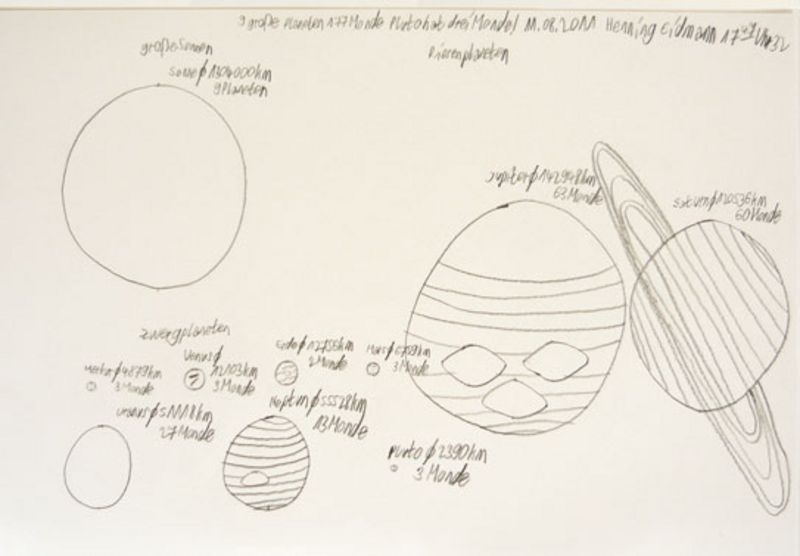 9 große Planeten 177 Monde Pluto hat drei Monde! 11.08.2011 Henning Eidmann 17 Uhr 32
große Sonnen
Riesenplaneten
Sonne ϕ 1304000km
9 Planeten
Jupiter ϕ 142948km
63 Monde
Saturn ϕ 120536km
60 Monde
Zwergplaneten
ϕ 4879km
3 Monde
Venus ϕ
12103km
3 Monde
ϕ 12756km
2 Monde
Mars ϕ 6789km
3 Monde
ϕ 51118km
27 Monde
Neptun ϕ 55528km
13 Monde
Pluto ϕ 2390km
3 Monde